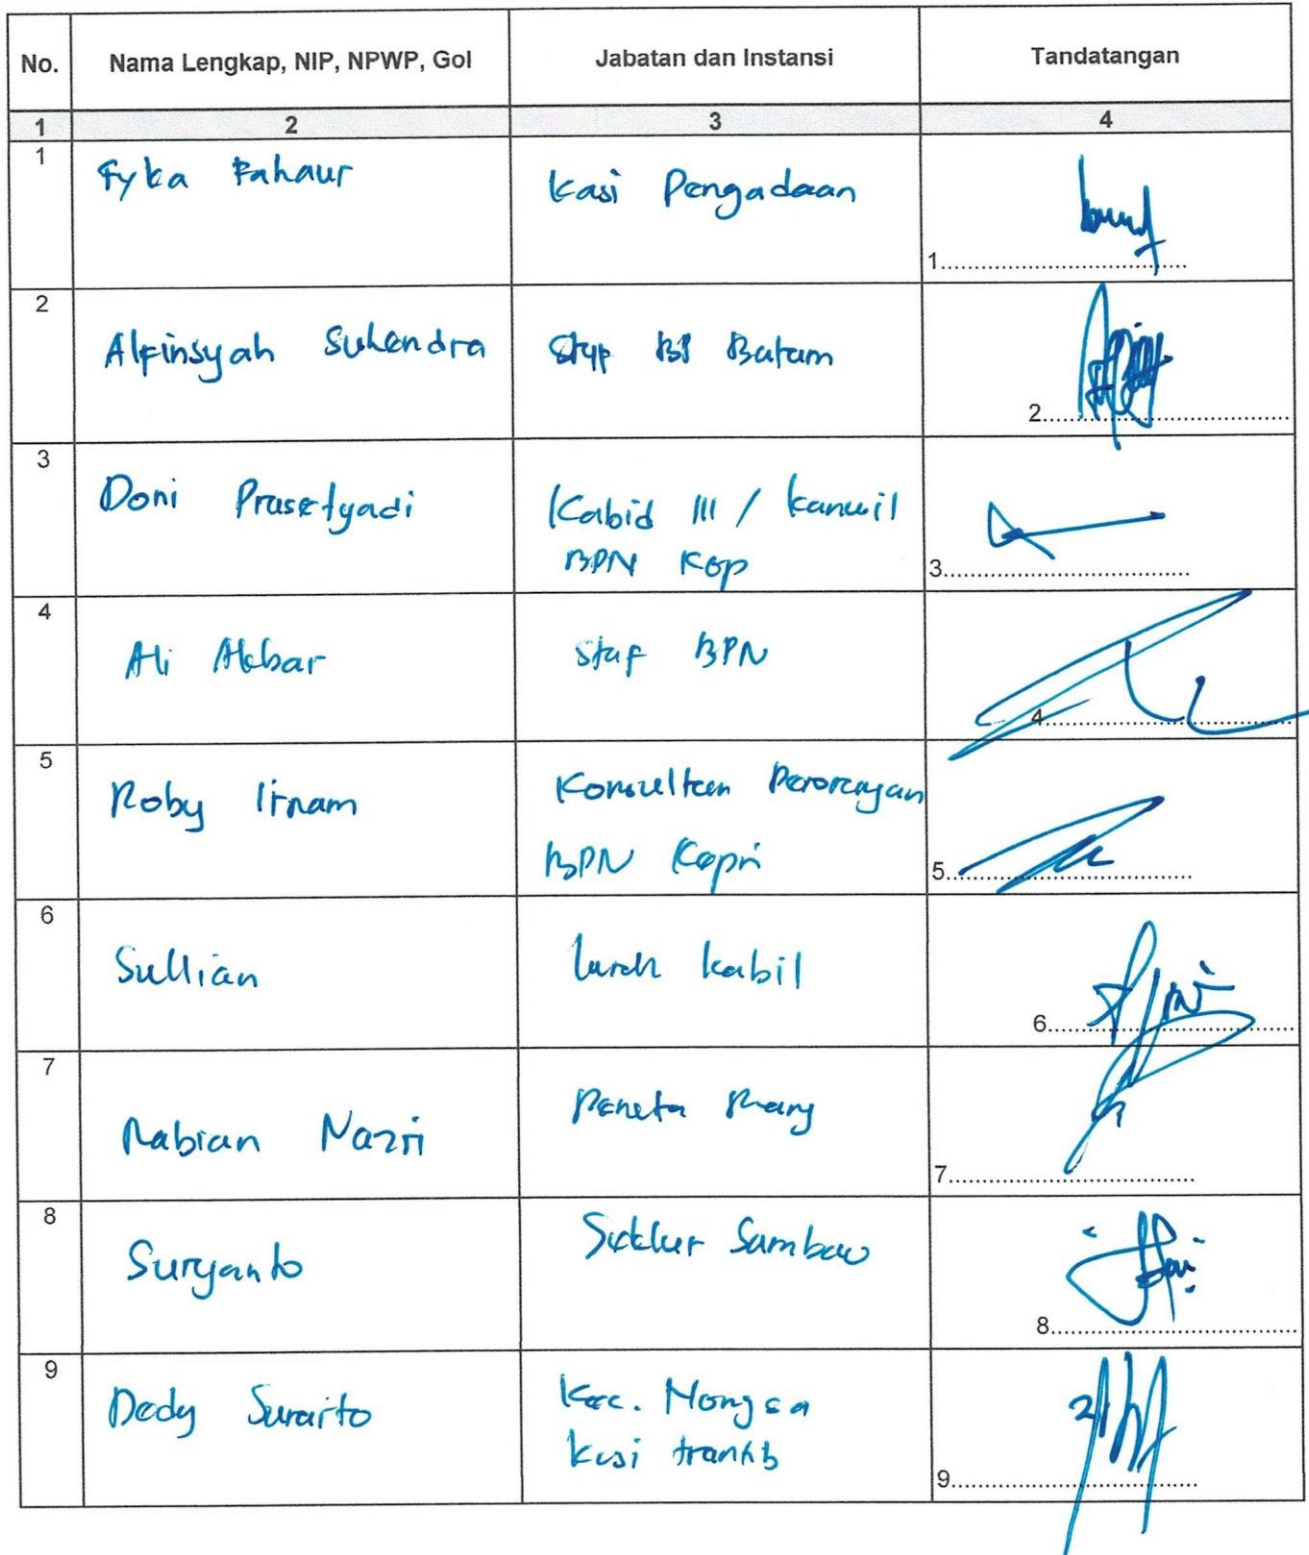 No. Nama Lengkap, NIP, NPWP, Gol Jabatan dan Instansi Tandatangan
1 2 3 4
1 Fyka Fahaur Kasi Pengadaan
1
2 Alfinsyah Suhendra Staf BP Batam
2
3 Doni Prasetyadi Kabid III / Kanwil
BPN Kep
3
4 Ali Akbar Staf BPN
4
5 Roby Irnam Konsultan Perorangan
BPN Kepri
5
6 Sullian Lurah Kabil
6
7 Rabian Nazri Penata Ruang
7
8 Suryanto Sambau
8
9 Dedy Suraito Kec. Nongsa
Kasi trantib
9